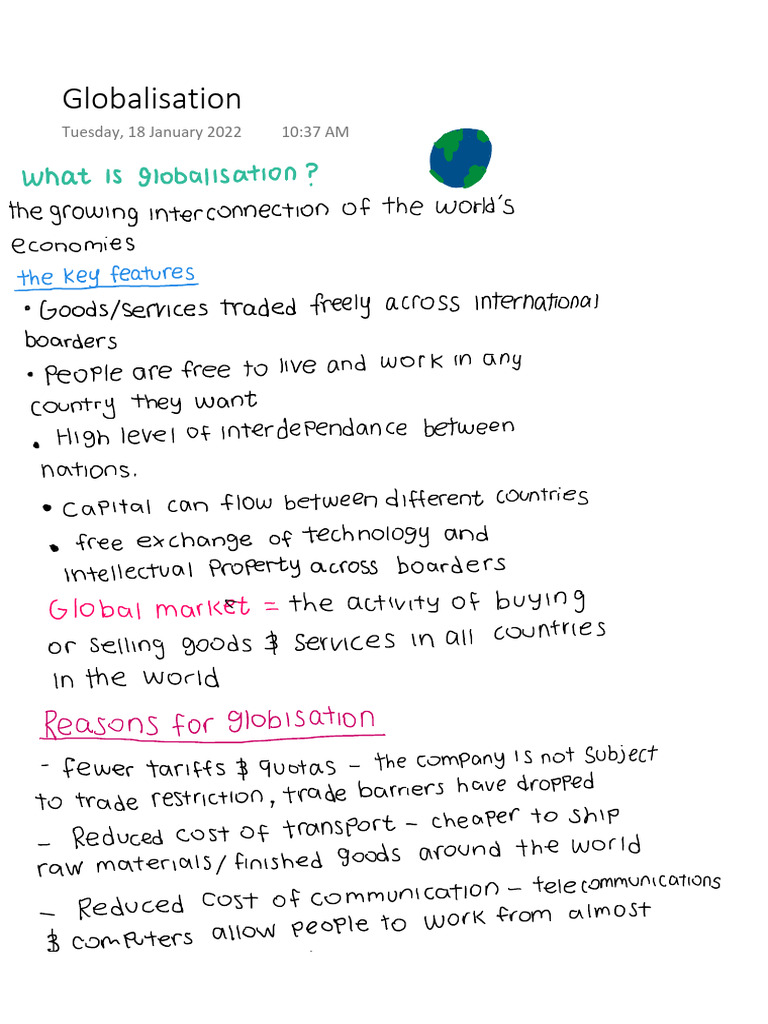 Globalisation
Tuesday, 18 January 2022 10:37 AM
What is globalisation?
the growing interconnection of the world's
economies
the key features
• Goods/services traded freely across international
boarders
• People are free to live and work in any
country they want
• High level of interdependance between
nations.
• Capital can flow between different countries
• free exchange of technology and
intellectual property across boarders
Global market = the activity of buying
or selling goods & services in all countries
in the world
Reasons for globisation
- fewer tariffs & quotas – the company is not subject
to trade restriction, trade barriers have dropped
– Reduced cost of transport – cheaper to ship
raw materials/finished goods around the world
– Reduced cost of communication – telecommunications
& computers allow people to work from almost